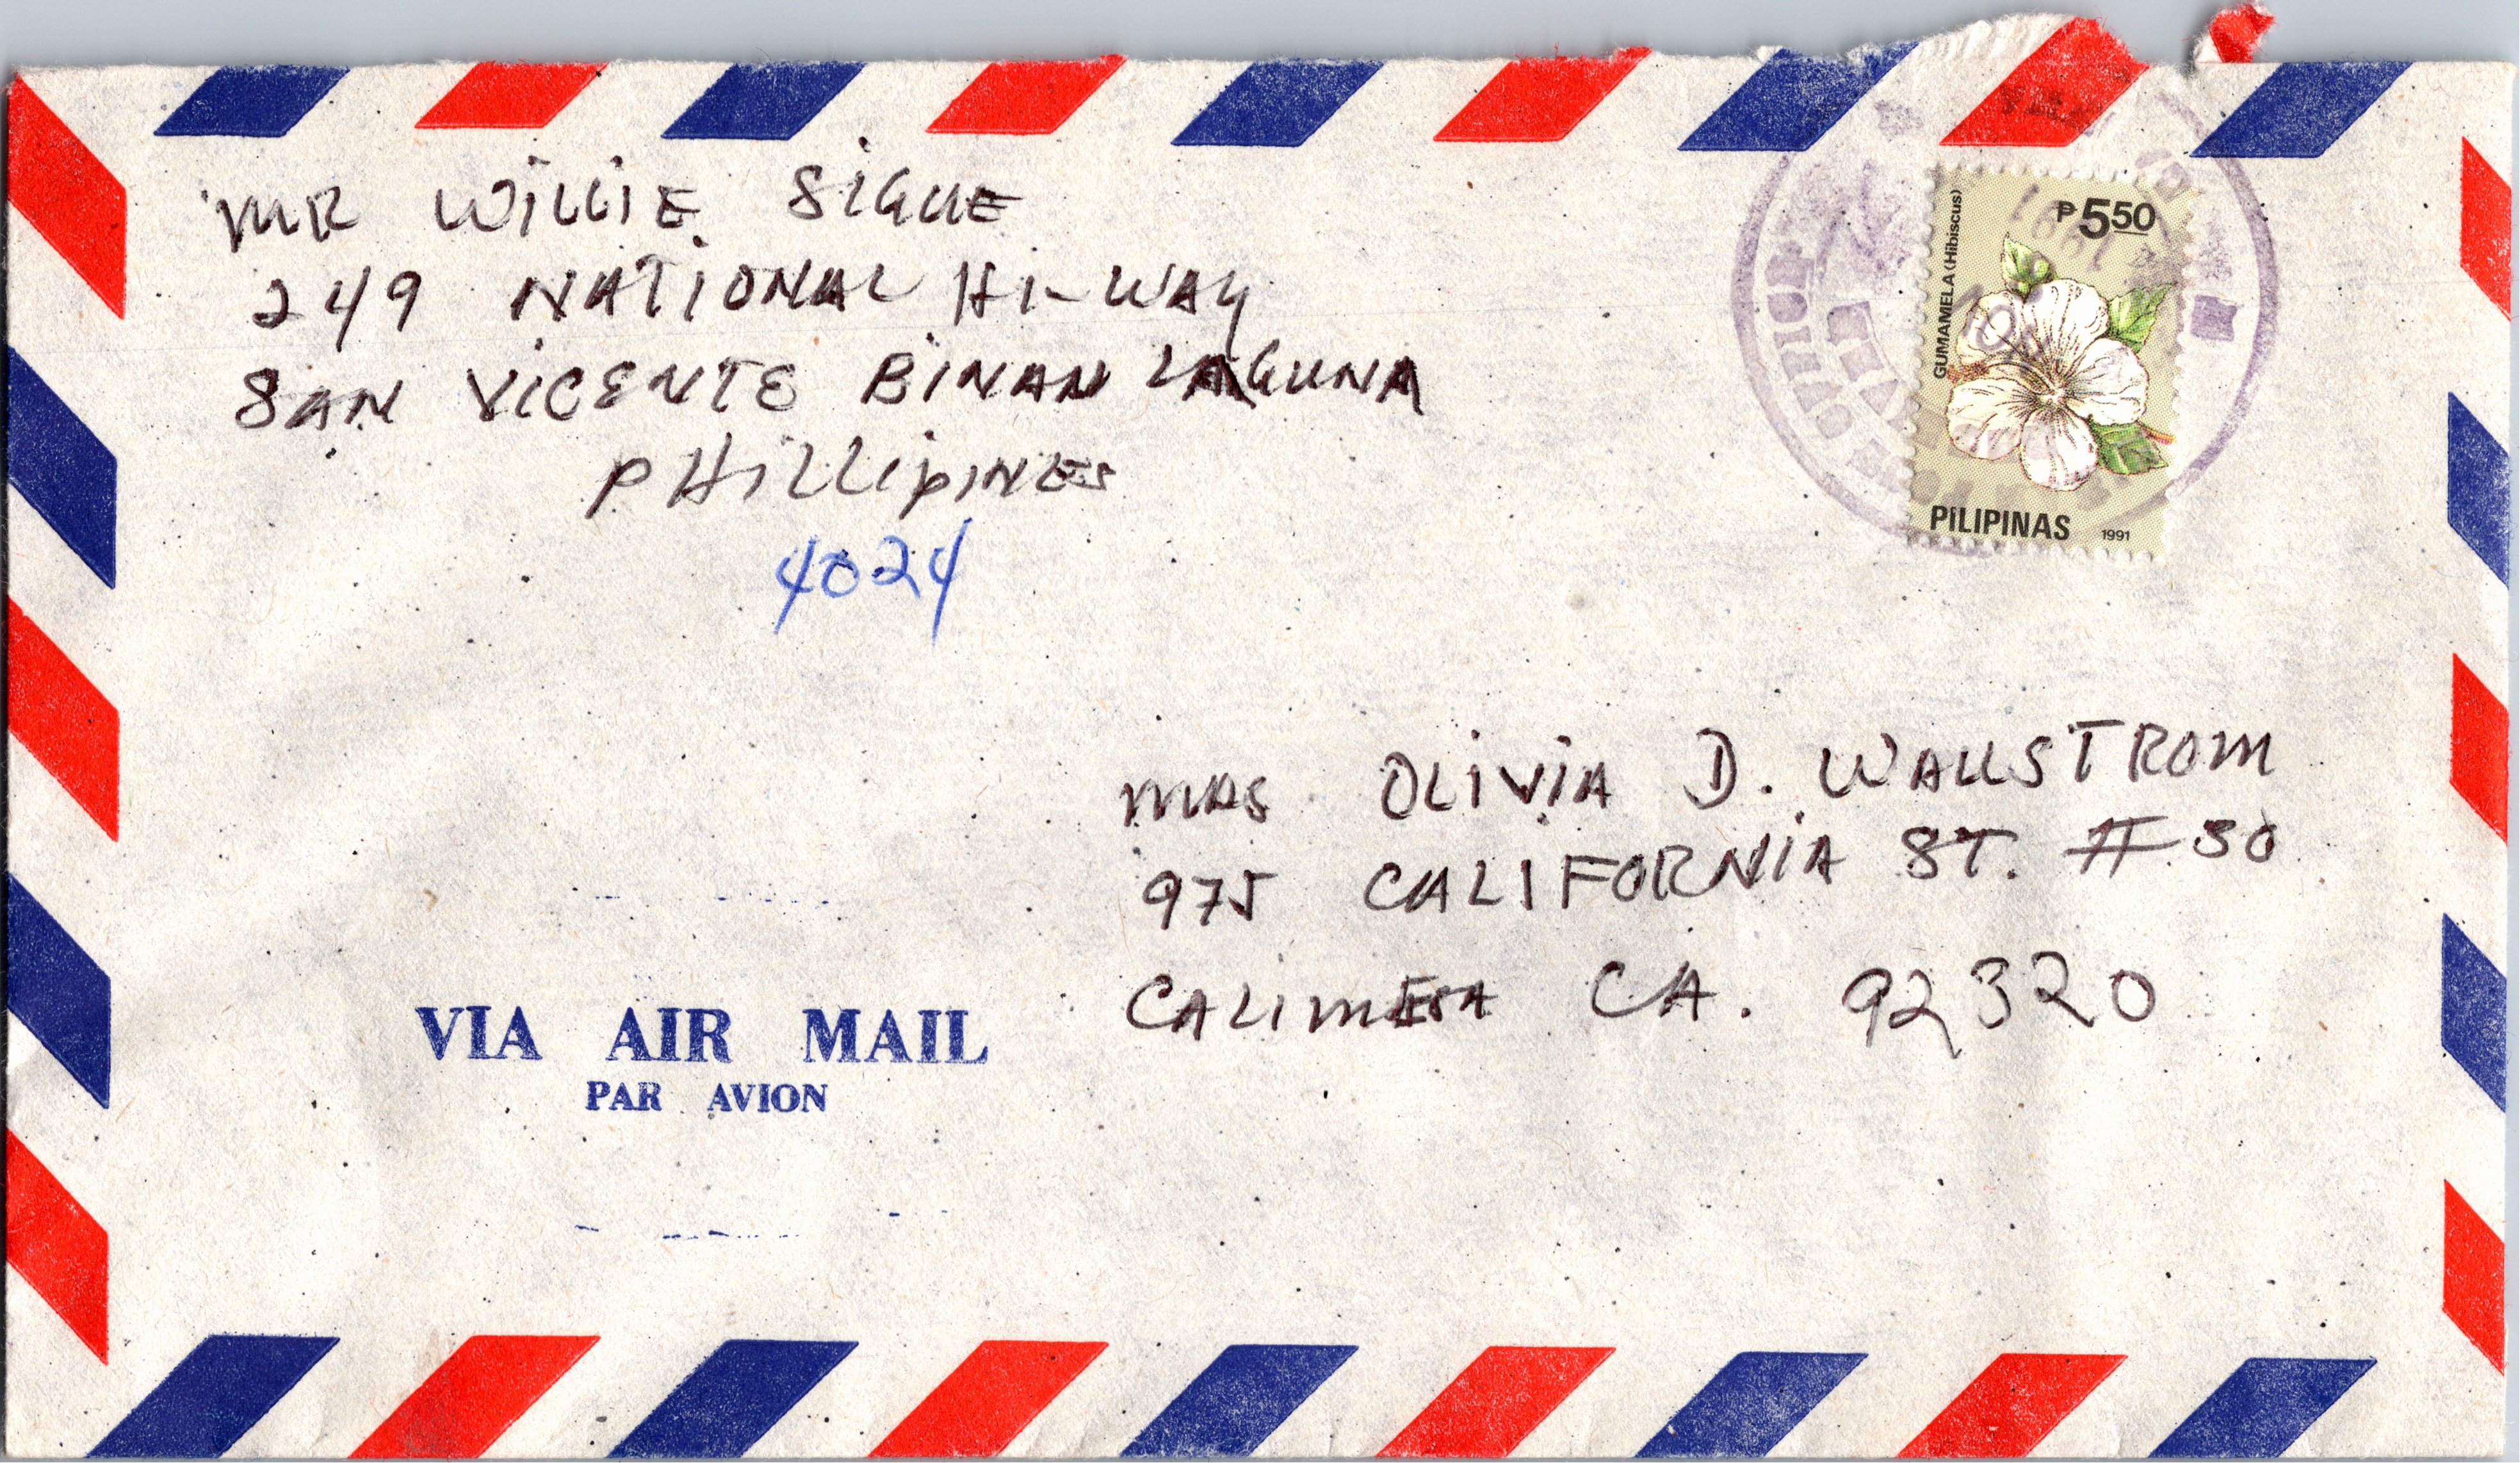 MR WILLIE SIGUE
249 NATIONAL HI-WAY
SAN VICENTE BINAN LAGUNA
PHILLIPINES
4024
GUMAMELA (Hibiscus)
₱5.50
PILIPINAS 1991
1991
MRS OLIVIA D. WALLSTROM
975 CALIFORNIA ST. # 80
CALIMESA CA. 92320
VIA AIR MAIL
PAR AVION